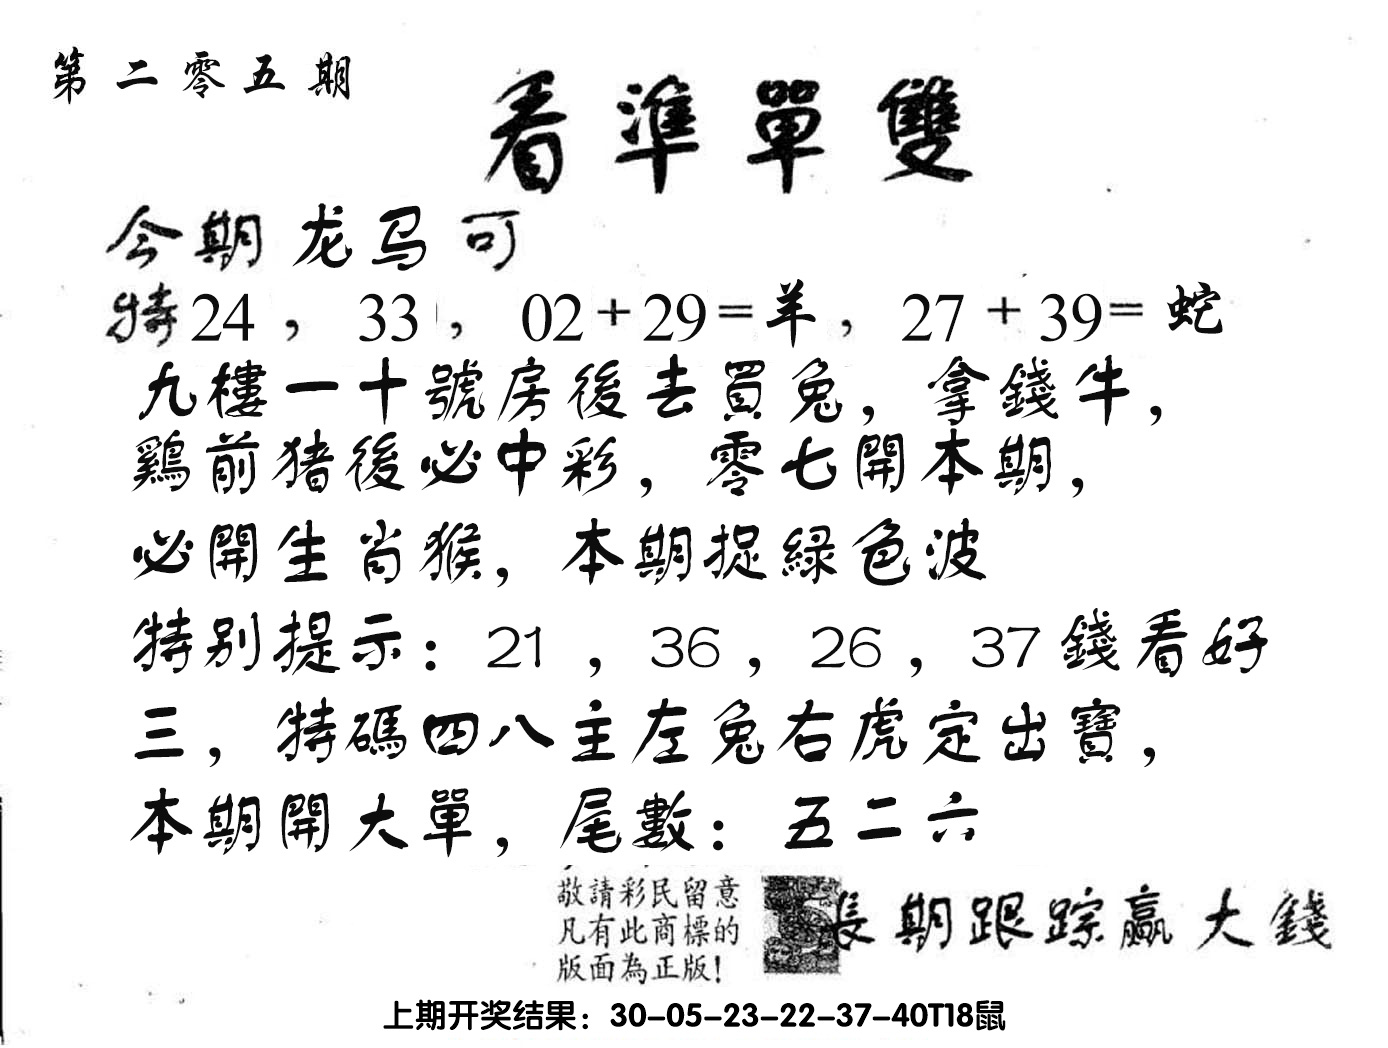 第二零五期
看準單雙
今期龙马可
特24，33，02+29=羊，27+39=蛇
九樓一十號房後去買兔，拿錢牛，
鷄前猪後必中彩，零七開本期，
必開生肖猴，本期捉緑色波
特别提示：21，36，26，37錢看好
三，特碼四八主左兔右虎定出寶，
本期開大單，尾數：五二六
敬請彩民留意
凡有此商標的
版面為正版！
長期跟踪赢大錢
上期开奖结果：30-05-23-22-37-40T18鼠